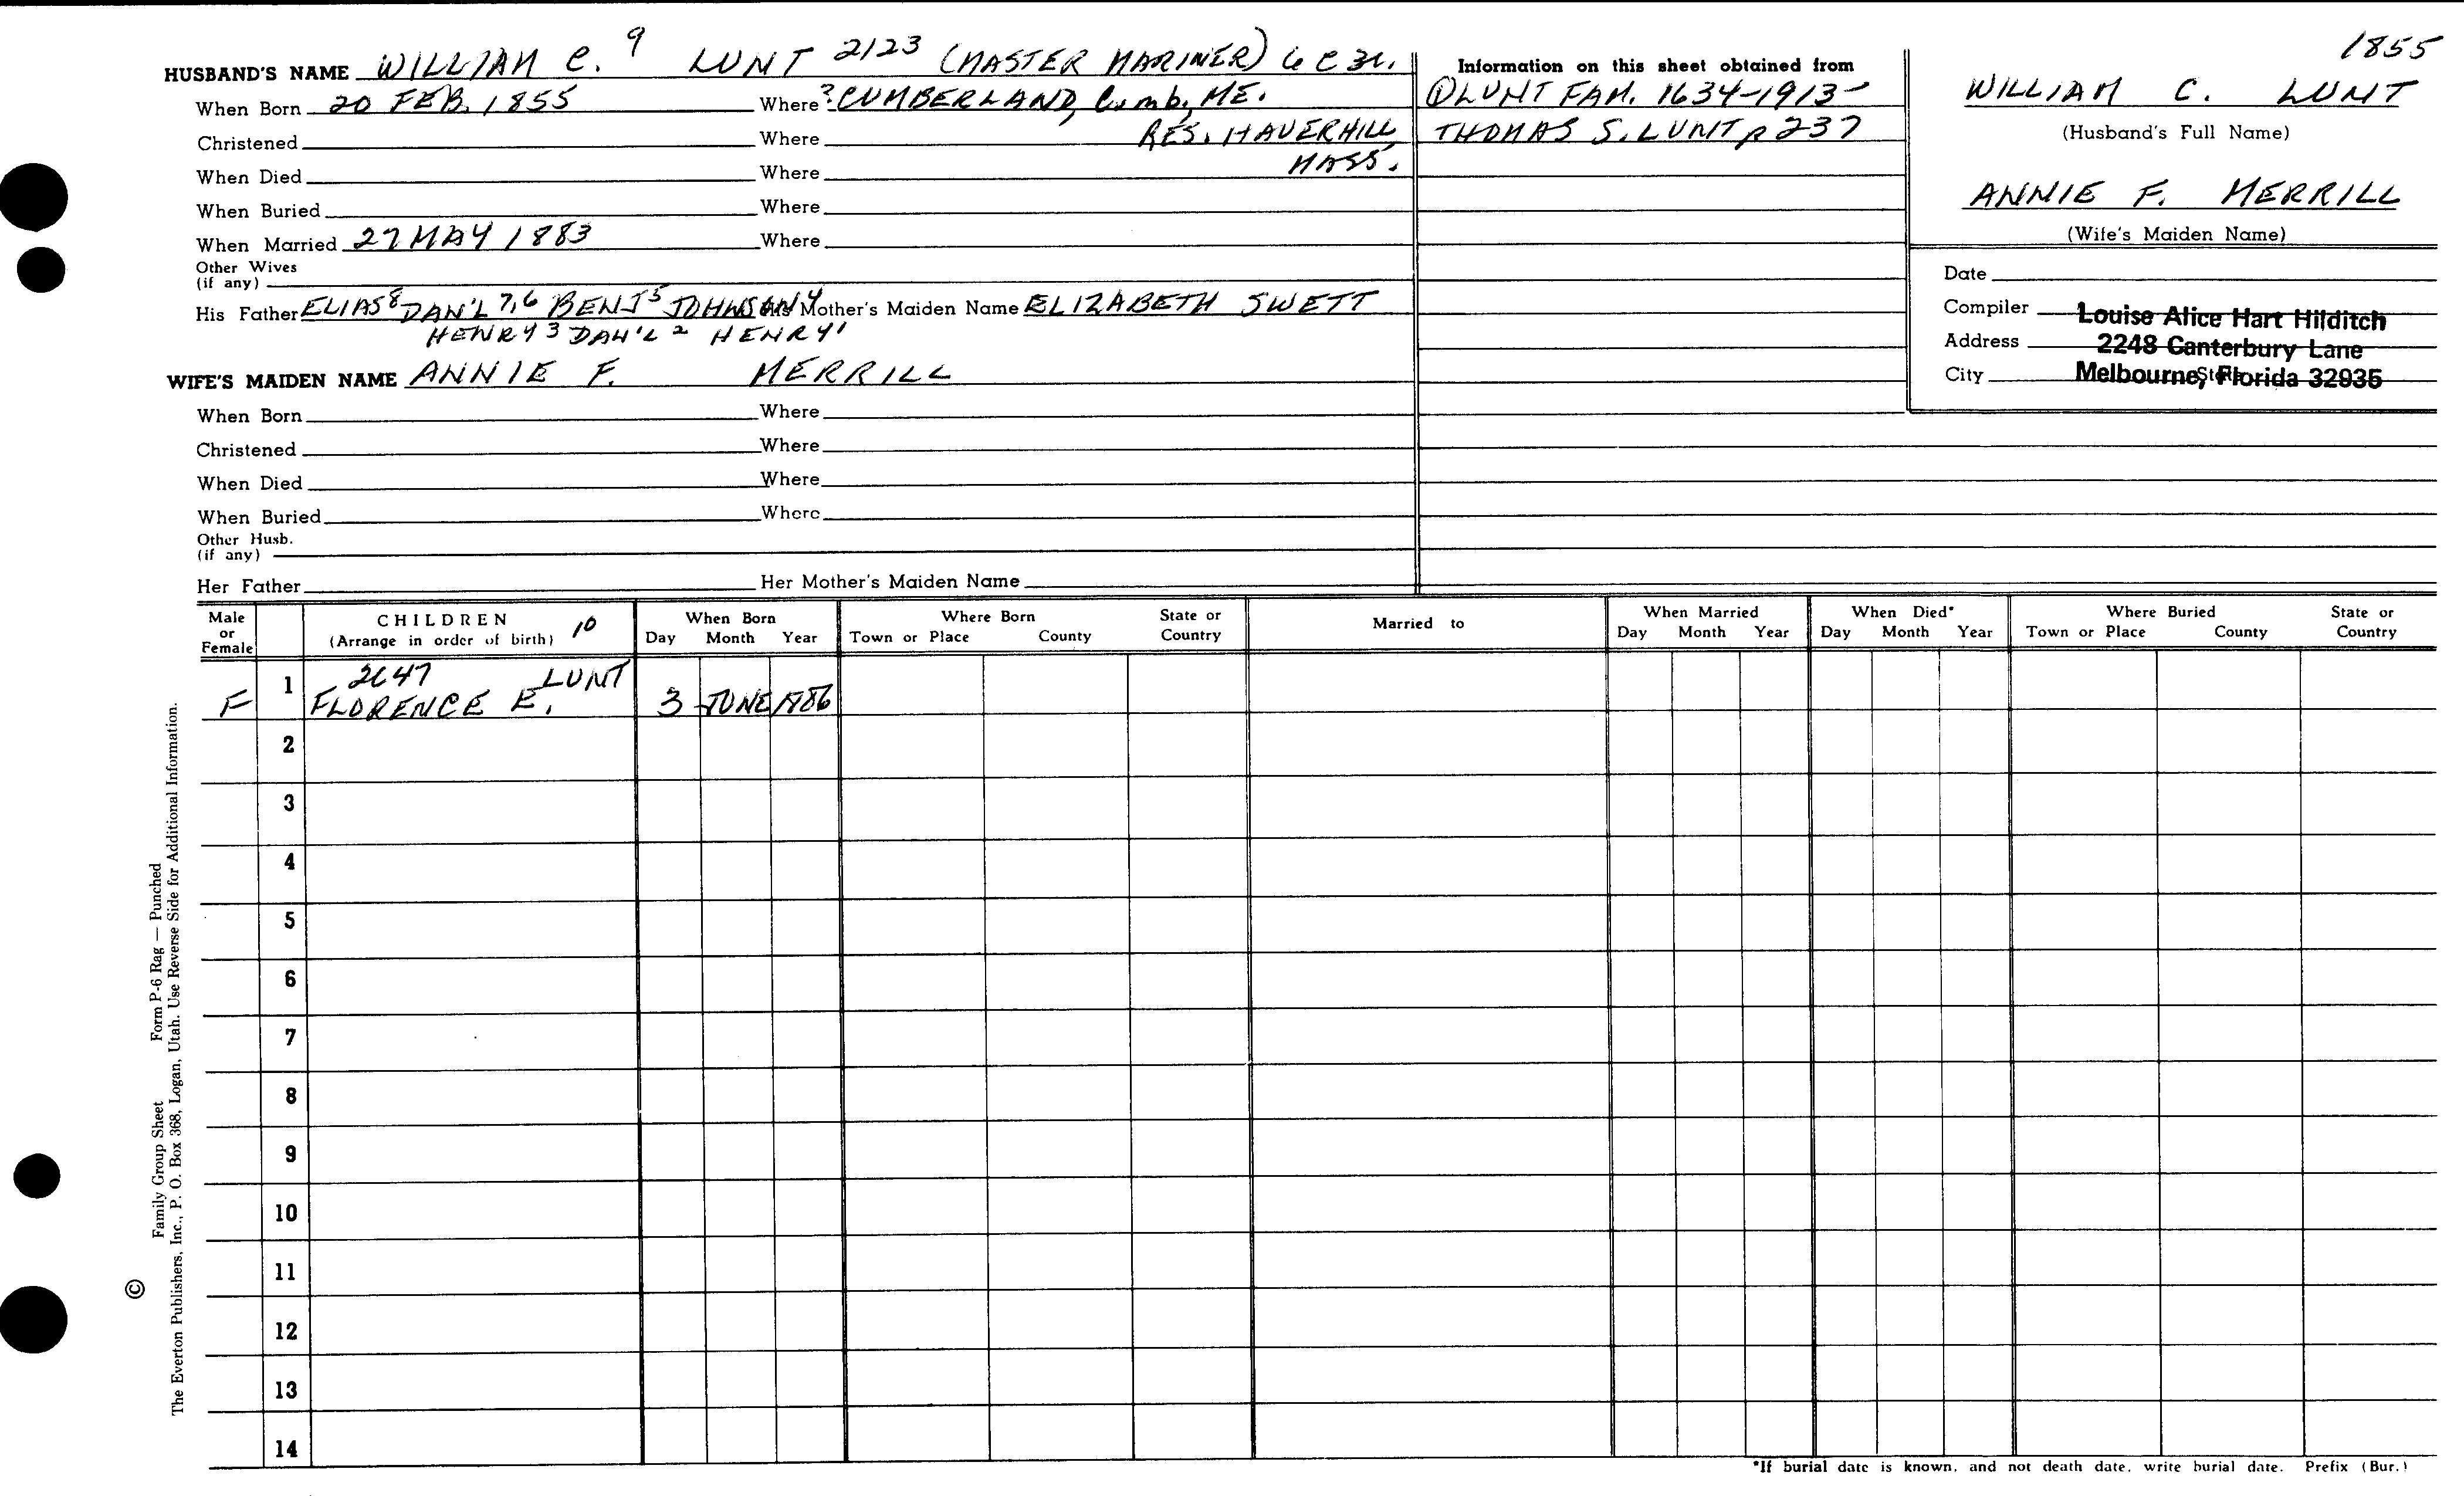 1855
HUSBAND'S NAME WILLIAM C. 9 LUNT 2123 (MASTER MARINER)
When Born 20 FEB. 1855 Where ? CUMBERLAND, Cumb, ME.
Christened Where RES. HAVERHILL
MASS.
When Died Where
When Buried Where
When Married 27 MAY 1883 Where
Other Wives
(if any)
His Father ELIAS 8 DAN'L 7,6 BENJ 5 JOHNSON 4 His Mother's Maiden Name ELIZABETH SWETT
HENRY 3 DAN'L 2 HENRY 1
WIFE'S MAIDEN NAME ANNIE F. MERRILL
When Born Where
Christened Where
When Died Where
When Buried Where
Other Husb.
(if any)
Her Father Her Mother's Maiden Name
Information on this sheet obtained from
① LUNT FAM. 1634-1913-
THOMAS S. LUNT p 237
WILLIAM C. LUNT
(Husband's Full Name)
ANNIE F. MERRILL
(Wife's Maiden Name)
Date
Compiler Louise Alice Hart Hilditch
Address 2248 Canterbury Lane
City State Melbourne, Florida 32935
Male or Female CHILDREN 10 (Arrange in order of birth) When Born Day Month Year Where Born Town or Place County State or Country Married to When Married Day Month Year When Died* Day Month Year Where Buried Town or Place County State or Country
F 1 2647 FLORENCE E. LUNT 3 JUNE 1886
2
3
4
5
6
7
8
9
10
11
12
13
14
*If burial date is known, and not death date, write burial date. Prefix (Bur.)
© Family Group Sheet Form P-6 Rag — Punched
The Everton Publishers, Inc., P. O. Box 368, Logan, Utah. Use Reverse Side for Additional Information.